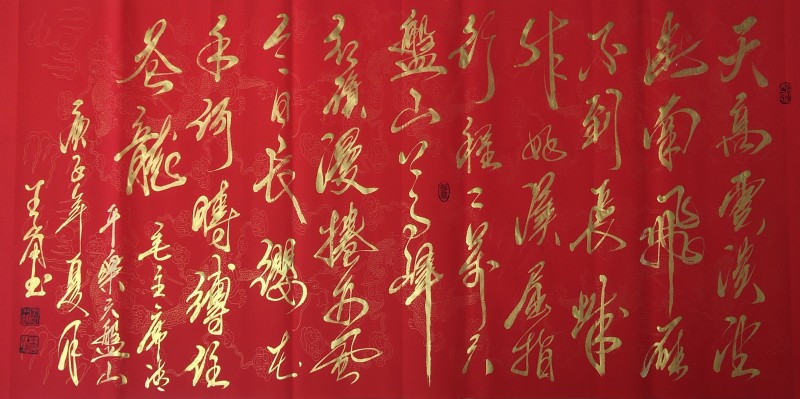 天高雲淡望
斷南飛雁
不到長城
非好漢屈指
行程二萬六
盤山上高峰
紅旗漫捲西風
今日長纓在
手何時縛住
蒼龍
毛主席清
平樂六盤山
庚子年夏月
王 书